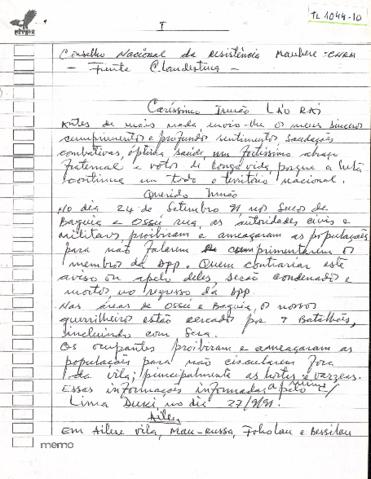 I
TL 1044-10
Conselho Nacional da Resistência Maubere - CNRM
- Frente Clandestina -
Caríssimo Irmão LÃO RAI
Antes de mais nada envio-lhe os meus sinceros
cumprimentos e profundo sentimentos saudações
combativas, óptima saúde um fortíssimo abraço
fraternal e voto de longa vida, porque a luta
continua em todo o território nacional.
Querido Irmão
No dia 24 de Setembro 91 nos Sucos de
Baguia e Ossú, as autoridades civis e
militares, proibiram e ameaçaram as populações
para não falarem cumprimentarem os
membros da DPP. Quem contrariar este
aviso ou apelo deles, serão condenados e
mortos no regresso da DPP
Nas áreas de Ossú e Baguia, os nossos
guerrilheiros estão cercados por 7 Batalhões,
incluindo com Sera.
Os ocupantes proibiram e ameaçaram as
populações para não circularem fora
da vila; principalmente as hortas e varzeas.
Essas informações informadas a mim pelo
Lima no dia 27/9/91.
Aileu
Em Aileu Vila, Mau-Russa, Foholau e
memo